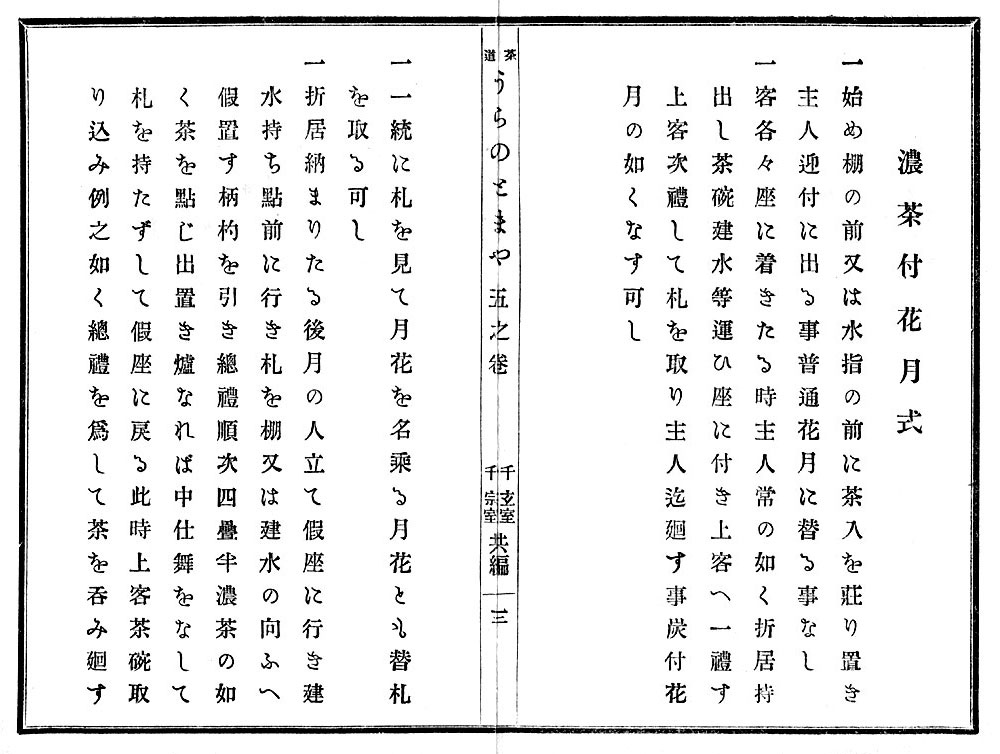 濃茶付花月式
一始め棚の前又は水指の前に茶入を莊り置き
主人迎付に出る事普通花月に替る事なし
一客各々座に着きたる時主人常の如く折居持
出し茶碗建水等運ひ座に付き上客へ一禮す
上客次禮して札を取り主人迄廻す事炭付花
月の如くなす可し
茶道
うらのとまや五之卷
千玄室
千宗室
共編
三
一一統に札を見て月花を名乘る月花とも替札
を取る可し
一折居納まりたる後月の人立て假座に行き建
水持ち點前に行き札を棚又は建水の向ふへ
假置す柄杓を引き總禮順次四疊半濃茶の如
く茶を點じ出置き爐なれば中仕舞をなして
札を持たずして假座に戾る此時上客茶碗取
り込み例之如く總禮を爲して茶を呑み廻す